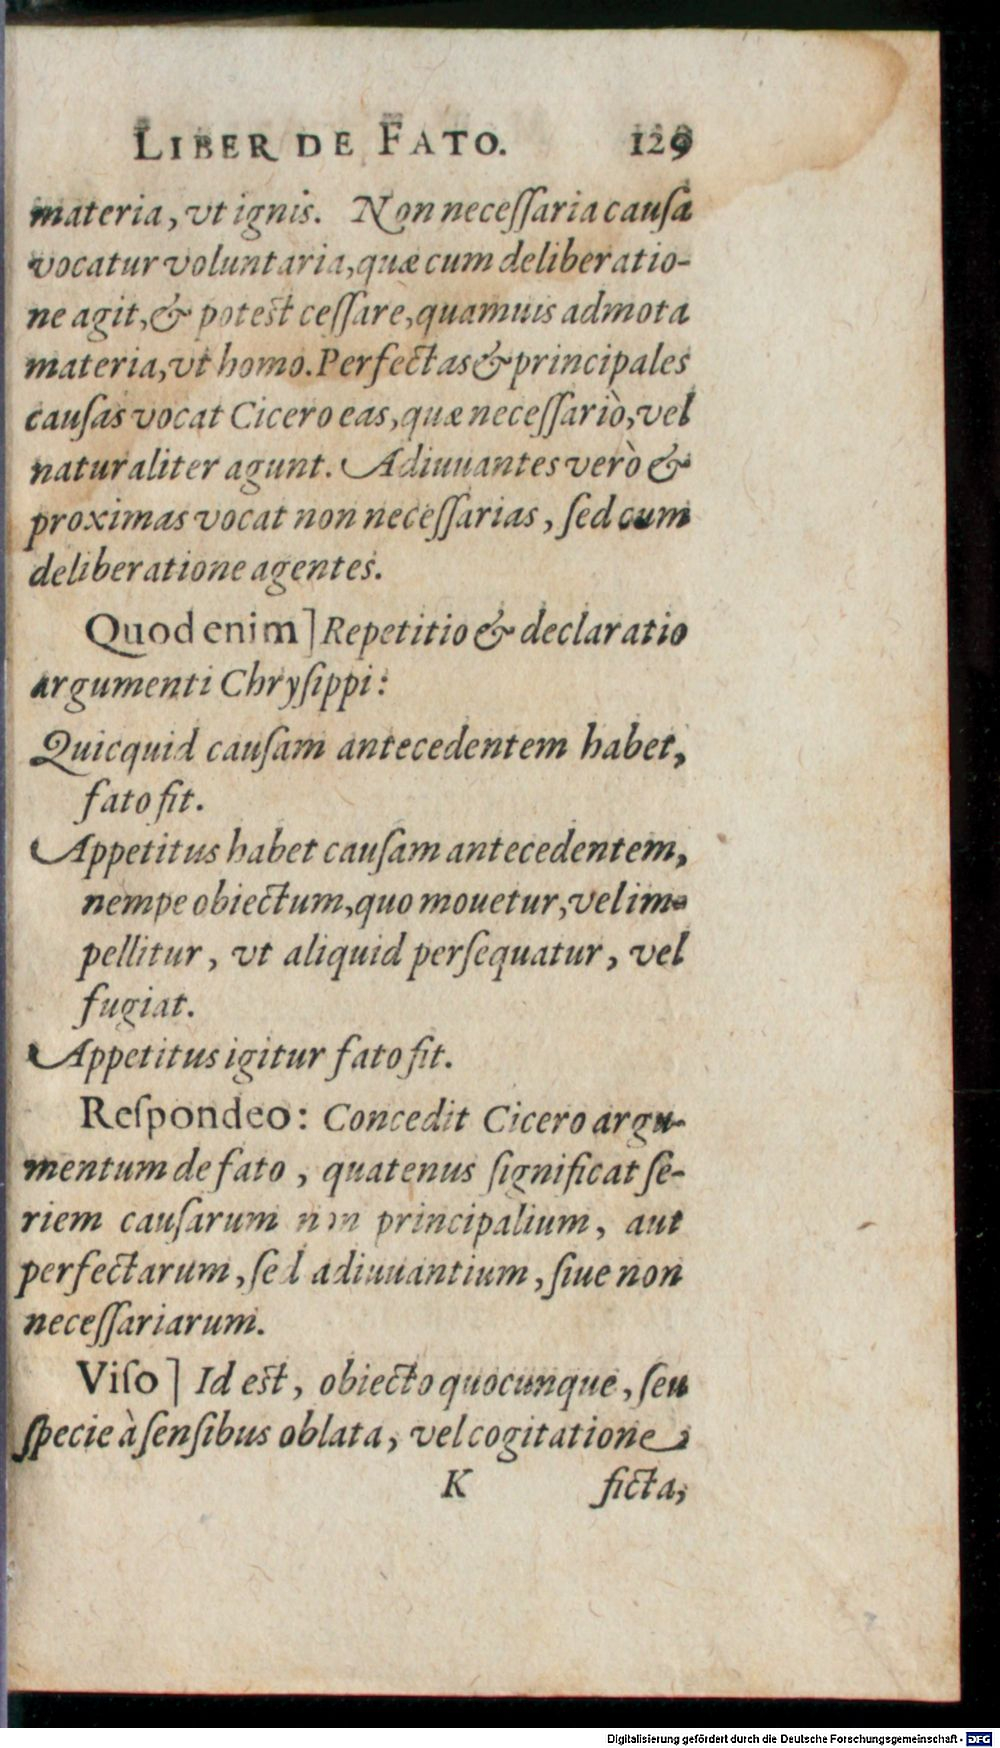 LIBER DE FATO. 129
materia, vt ignis. Non neceſſaria cauſa
vocatur voluntaria, quæ cum deliberatio-
ne agit, & poteſt ceſſare, quamuis admota
materia, vt homo. Perfectas & principales
cauſas vocat Cicero eas, quæ neceſſariò, vel
naturaliter agunt. Adiuuantes verò &
proximas vocat non neceſſarias, ſed cum
deliberatione agentes.
Quod enim] Repetitio & declaratio
argumenti Chryſippi:
Quicquid cauſam antecedentem habet,
fato fit.
Appetitus habet cauſam antecedentem,
nempe obiectum, quo mouetur, vel im-
pellitur, vt aliquid perſequatur, vel
fugiat.
Appetitus igitur fato fit.
Reſpondeo: Concedit Cicero argu-
mentum de fato, quatenus ſignificat ſe-
riem cauſarum non principalium, aut
perfectarum, ſed adiuuantium, ſiue non
neceſſariarum.
Viſo] Id eſt, obiecto quocunque, ſeu
ſpecie à ſenſibus oblata, vel cogitatione
K ficta,
Digitalisierung gefördert durch die Deutsche Forschungsgemeinschaft - DFG